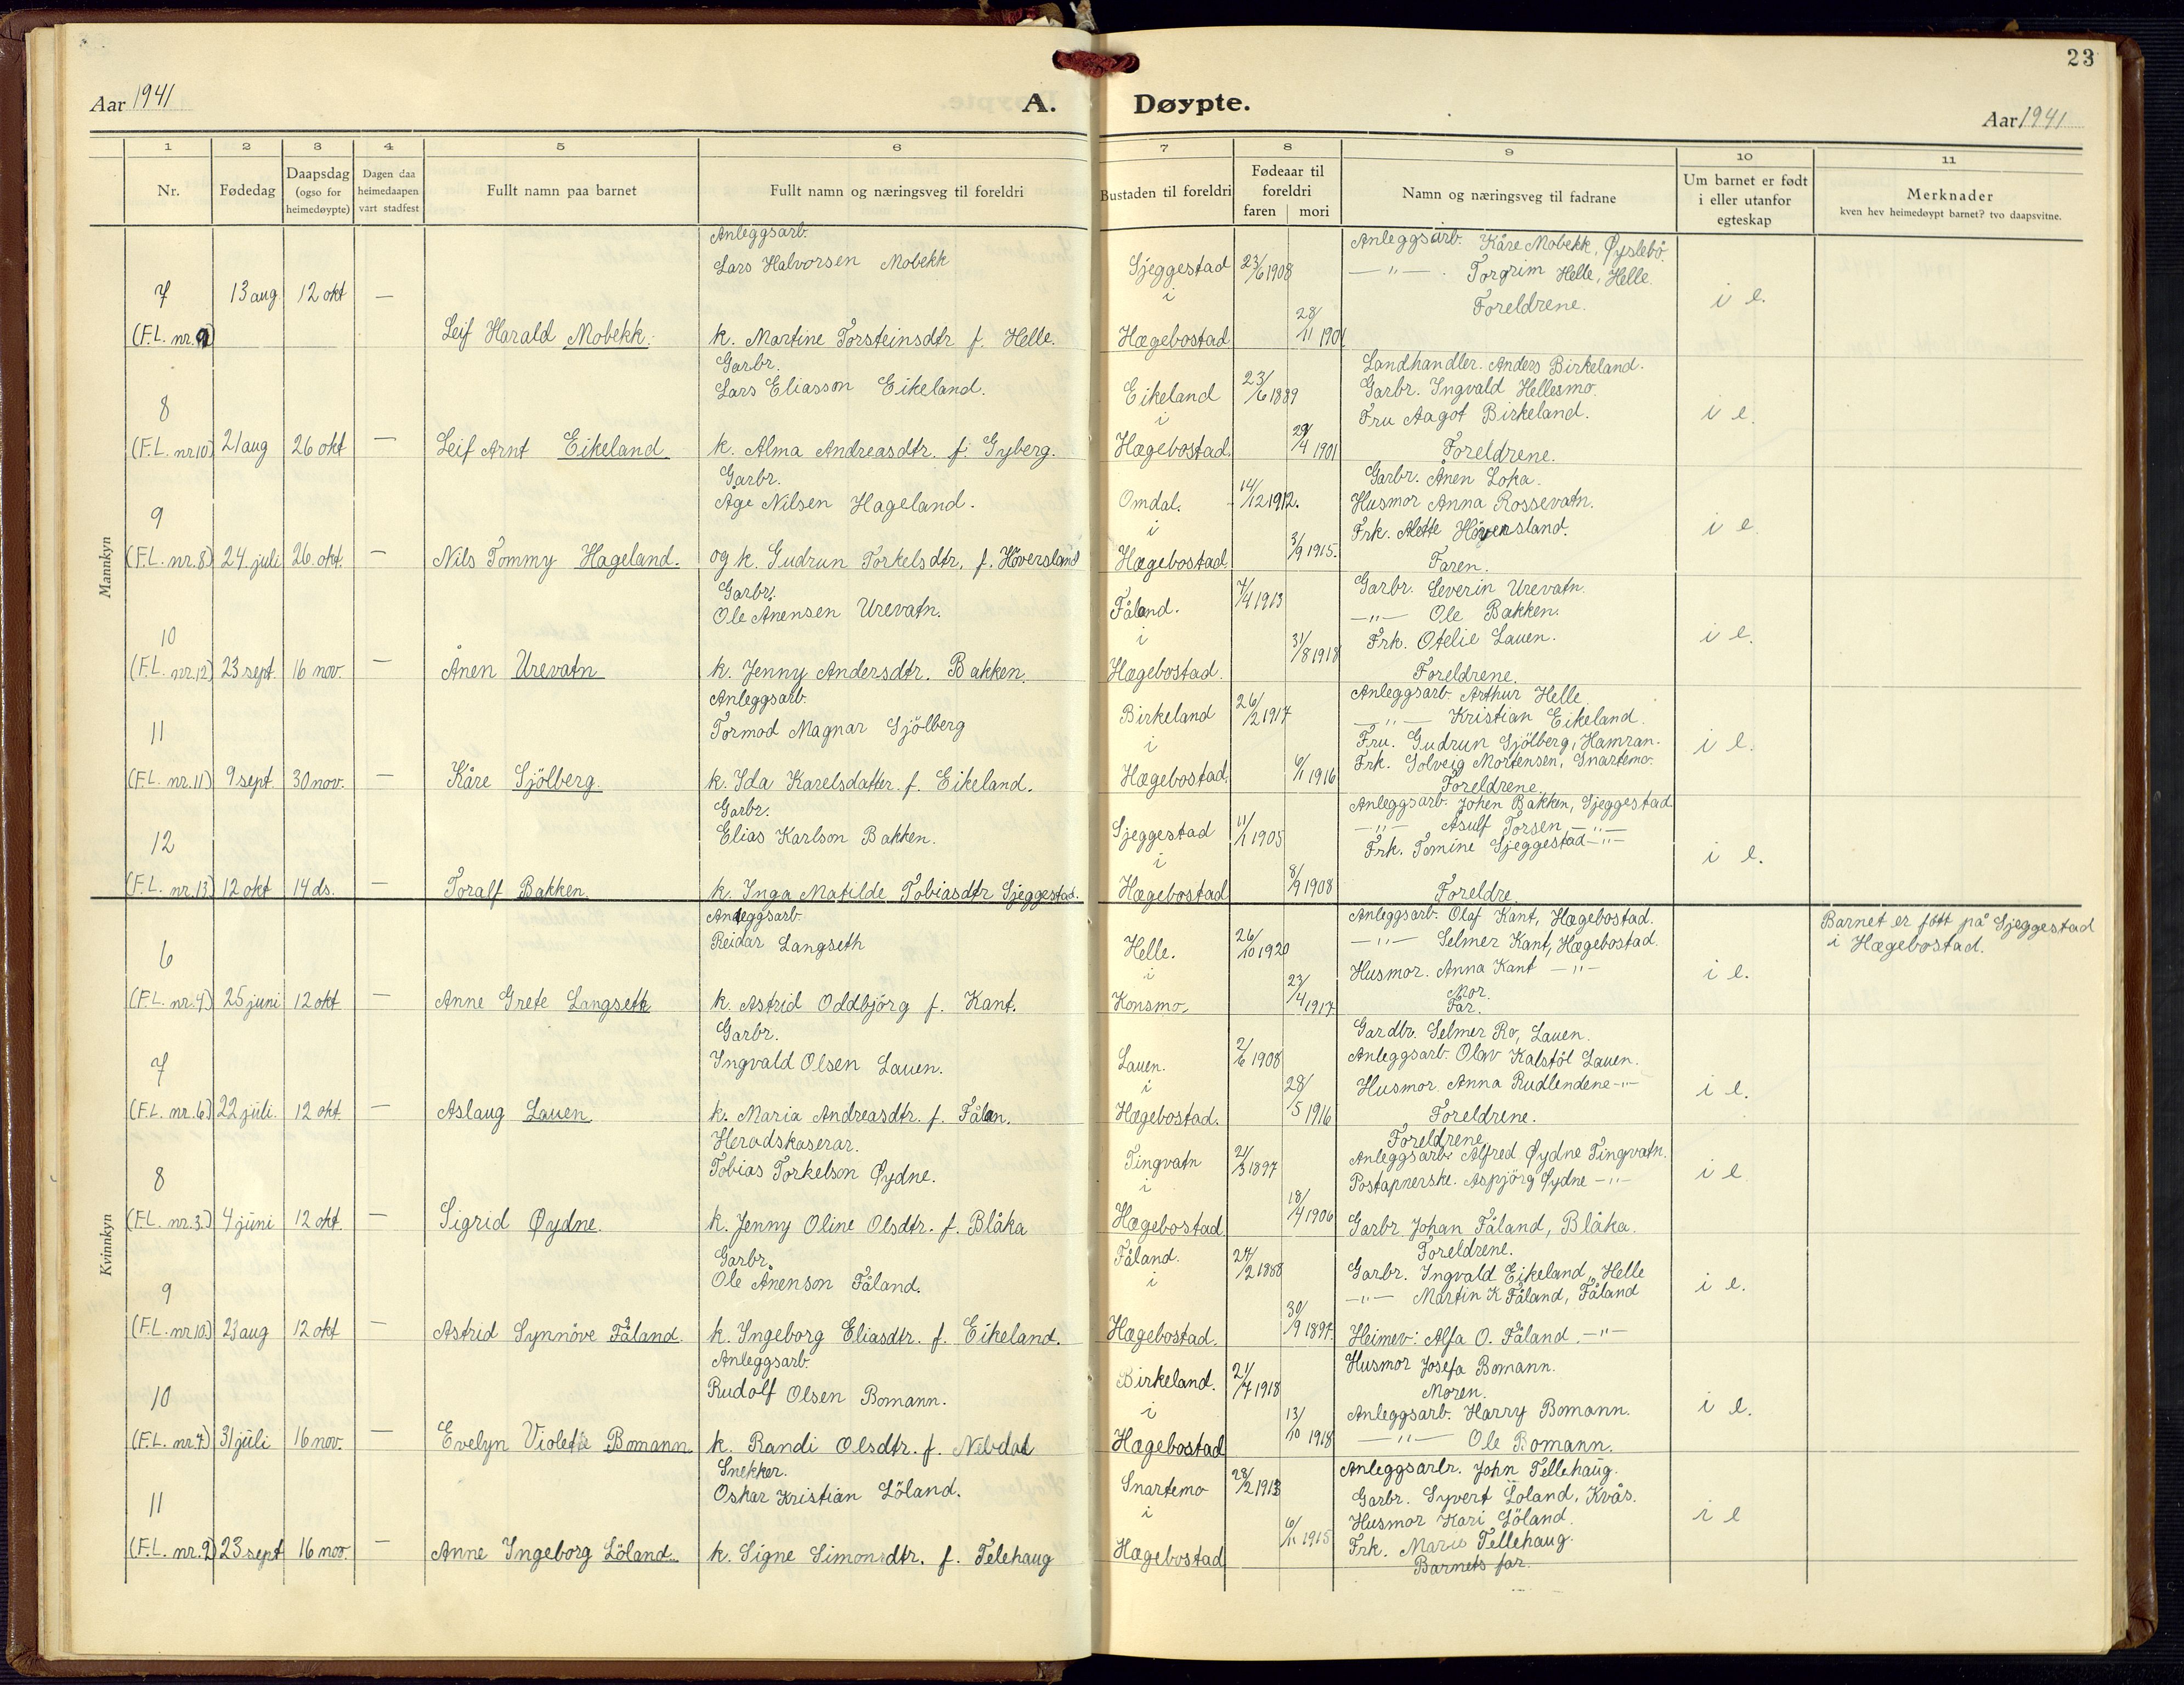 23
Aar 1941 A. Døypte. Aar 1941
1 2 3 4 5 6 7 8 9 10 11
Nr. Fødedag Daapsdag (ogso for heimedøypte) Dagen daa heimedaapen vart stadfest Fullt namn paa barnet Fullt namn og næringsveg til foreldri Bustaden til foreldri Fødeaar til foreldri faren mori Namn og næringsveg til fadrane Um barnet er født i eller utanfor egteskap Merknader kven hev heimedøypt barnet? tvo daapsvitne.
Mannkyn
Anleggsarb. Anleggsarb. Kåre Mobekk, Øyslebø.
Lars Halvorsen Mobekk Sjeggestad 23/6 1908 —"— . Torgrim Helle, Helle.
7 13 aug 12 okt — i Foreldrene. i e.
(F.L. nr. 9) Leif Harald Mobekk. k. Martine Torsteinsdtr f. Helle. Hægebostad 28/11 1901
Garbr. Landhandler. Anders Birkeland.
Lars Eliasson Eikeland. Eikeland 23/6 1889 Garbr. Ingvald Hellesmo.
8 i Fru Aagot Birkeland. i e.
(F.L. nr 10) 21 aug 26 okt — Leif Arnt Eikeland. k. Alma Andreasdtr. f. Gyberg. Hægebostad. 29/4 1901 Foreldrene.
Garbr. Garbr. Ånen Loka.
Åge Nilsen Hageland. Omdal. 14/12 1912. Husmor Anna Rossevatn.
9 i Frk. Alette Höversland. i e.
(F.L. nr. 8) 24. juli 26. okt. — Nils Tommy Hageland. og k. Gudrun Torkelsdtr. f. Höversland Hægebostad 3/9 1915. Faren.
Garbr. Garbr. Severin Urevatn.
Ole Ånensen Urevatn. Fåland. 7/4 1913 —"— Ole Bakken.
10 i Frk. Otelie Lauen. i e.
(F.L. nr. 12) 23 sept. 16 nov. — Ånen Urevatn k. Jenny Andersdtr. Bakken. Hægebostad. 31/8 1918 Foreldrene.
Anleggsarb. Anleggsarb. Arthur Helle
Tormod Magnar Sjölberg Birkeland 26/2 1917 —"— Kristian Eikeland.
11 i Fru. Gudrun Sjölberg, Hamran. i e.
Frk. Solveig Mortensen, Snartemo.
(F.L. nr. 11) 9 sept. 30 nov. — Kåre Sjölberg. k. Ida Karelsdatter. f. Eikeland. Hægebostad. 6/1 1916 Foreldrene.
Garbr. Anleggsarb. Johen Bakken, Sjeggestad
Elias Karlson Bakken. Sjeggestad 11/1 1905 —"— Asulf Torsen —"—
12 i Frk. Tomine Sjeggestad —"— i e.
(F.L. nr. 13) 12 okt 14 ds. — Toralf Bakken. k. Inga Matilde Tobiasdtr Sjeggestad. Hægebostad 8/9 1908 Foreldre.
Kvinnkyn
Anleggsarb. Anleggsarb. Olaf Kant, Hægebostad. Barnet er fött på Sjeggestad
Reidar Langseth Helle. 26/10 1920 —"— Selmer Kant, Hægebostad. i Hægebostad.
6 i Husmor. Anna Kant —"— i e.
Mor.
(F.L. nr. 4) 25 juni 12 okt — Anne Grete Langseth k. Astrid Oddbjörg f. Kant. Konsmo. 23/4 1917 Far.
Garbr. Gardbr. Selmer Ro, Lauen.
Ingvald Olsen Lauen. Lauen. 2/6 1908 Anleggsarb. Olav Kalstöl Lauen.
7 i Husmor. Anna Rudlendene —"— i e.
(F.L. nr. 6) 22 juli. 12 okt. — Aslaug Lauen k. Maria Andreasdtr. f. Fålan. Hægebostad. 28/5 1916 Foreldrene.
Heradskaserar. Foreldrene.
Tobias Torkelson Øydne. Tingvatn 2/3 1897 Anleggsarb. Alfred Øydne Tingvatn.
8 i Postapnerske. Aspjörg Øydne —"— i e
(F.L. nr. 3.) 4 juni 12 okt. — Sigrid Øydne. k. Jenny Oline Olsdtr. f. Blåka Hægebostad 18/4 1906 Garbr Johan Fåland, Blåka.
Garbr. Foreldrene.
Ole Ånenson Fåland. Fåland. 24/2 1888 Garbr. Ingvald Eikeland, Helle
9 i —"— Martin K Fåland, Fåland i e.
(F.L. nr 10.) 23 aug 12 okt — Astrid Synnöve Fåland. k. Ingeborg Eliasdtr. f. Eikeland. Hægebostad. 30/9 1897. Heimev: Alfa O. Fåland. —"—
Anleggsarb. Husmor Josefa Bomann.
Rudolf Olsen Bomann. Birkeland. 21/7 1918 Moren.
10 i Anleggsarb. Harry Bomann. i e.
(F.L. nr. 7.) 31 juli 16 nov. — Evelyn Violette Bomann k. Randi Olsdtr. f. Nebdal Hægebostad 13/10 1918 —"— Ole Bomann.
Snekker. Anleggsarbr. John Tellehaug.
Oskar Kristian Löland. Snartemo 28/2 1913 Garbr. Syvert Löland, Kvås.
11 i Husmor Kari Löland. i e
Frk. Marie Tellehaug.
(F.L. nr. 9) 23 sept 16 nov. — Anne Ingeborg Löland. k. Signe Simonsdtr. f. Telehaug Hægebostad 6/11 1915 Barnets far.